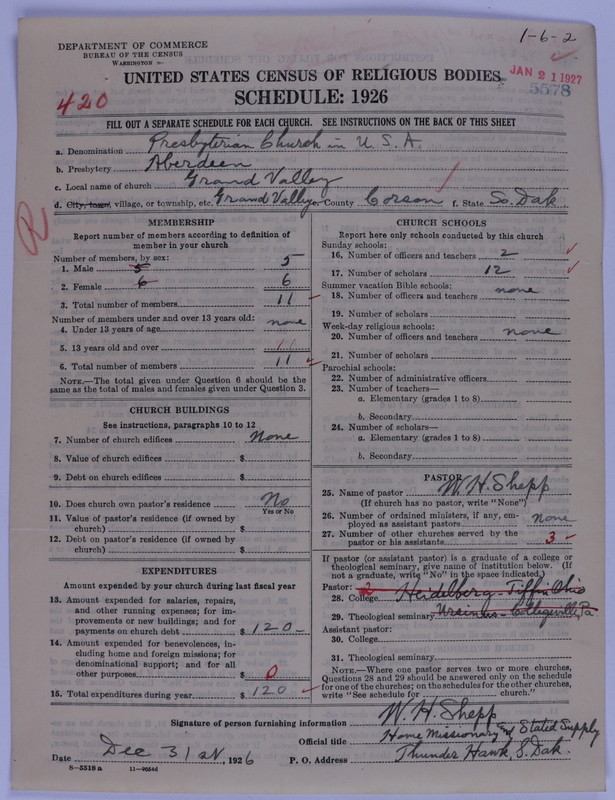 1-6-2
DEPARTMENT OF COMMERCE
BUREAU OF THE CENSUS
WASHINGTON
UNITED STATES CENSUS OF RELIGIOUS BODIES
JAN 21 1927
5578
420
SCHEDULE: 1926
FILL OUT A SEPARATE SCHEDULE FOR EACH CHURCH. SEE INSTRUCTIONS ON THE BACK OF THIS SHEET
a. Denomination Presbyterian Church in U. S. A.
b. Presbytery Aberdeen
c. Local name of church Grand Valley
d. City, town, village, or township, etc. Grand Valley e. County Corson f. State So. Dak.
R
MEMBERSHIP
Report number of members according to definition of
member in your church
Number of members, by sex:
1. Male 5 5
2. Female 6 6
3. Total number of members 11
Number of members under and over 13 years old:
4. Under 13 years of age none
5. 13 years old and over 11
6. Total number of members 11
NOTE.—The total given under Question 6 should be the
same as the total of males and females given under Question 3.
CHURCH BUILDINGS
See instructions, paragraphs 10 to 12
7. Number of church edifices None
8. Value of church edifices $
9. Debt on church edifices $
10. Does church own pastor's residence No
Yes or No
11. Value of pastor's residence (if owned by
church) $
12. Debt on pastor's residence (if owned by
church) $
EXPENDITURES
Amount expended by your church during last fiscal year
13. Amount expended for salaries, repairs,
and other running expenses; for im-
provements or new buildings; and for
payments on church debt $ 120-
14. Amount expended for benevolences, in-
cluding home and foreign missions; for
denominational support; and for all
other purposes $ 0
15. Total expenditures during year $ 120
CHURCH SCHOOLS
Report here only schools conducted by this church
Sunday schools:
16. Number of officers and teachers 2
17. Number of scholars 12
Summer vacation Bible schools:
18. Number of officers and teachers none
19. Number of scholars
Week-day religious schools:
20. Number of officers and teachers none
21. Number of scholars
Parochial schools:
22. Number of administrative officers
23. Number of teachers—
a. Elementary (grades 1 to 8)
b. Secondary
24. Number of scholars—
a. Elementary (grades 1 to 8)
b. Secondary
PASTOR
25. Name of pastor W. H. Shepp
(If church has no pastor, write "None")
26. Number of ordained ministers, if any, em-
ployed as assistant pastors none
27. Number of other churches served by the
pastor or his assistants 3
If pastor (or assistant pastor) is a graduate of a college or
theological seminary, give name of institution below. (If
not a graduate, write "No" in the space indicated.)
Pastor: 2
28. College Heidelberg - Tiffin Ohio
29. Theological seminary Ursinus - Collegeville, Pa
Assistant pastor:
30. College
31. Theological seminary
NOTE.—Where one pastor serves two or more churches,
Questions 28 and 29 should be answered only on the schedule
for one of the churches; on the schedules for the other churches,
write "See schedule for church."
Signature of person furnishing information W. H. Shepp
Official title Home Missionary and Stated Supply
Date Dec 31st, 1926 P. O. Address Thunder Hawk, S. Dak.
8—5518a 11—9054d